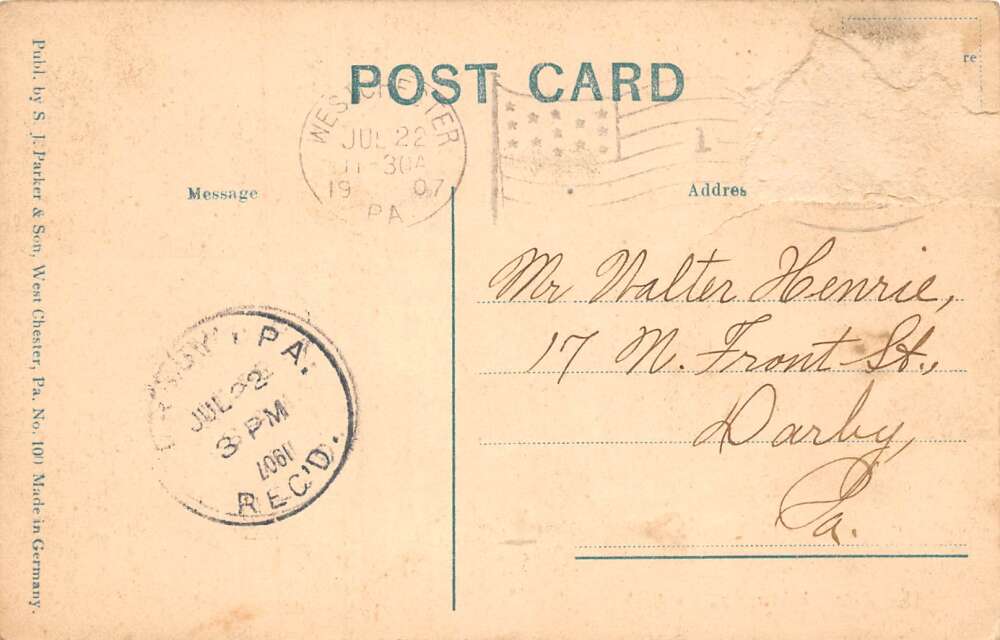 POST CARD
re
WEST CHESTER
JUL 22
11-30A
1907
PA
1
Message
Addres
Mr Walter Henrie,
17 N. Front St.,
Darby,
Pa.
DARBY, PA.
JUL 22
3 PM
1907
REC'D.
Publ. by S. J. Parker & Son, West Chester, Pa. No. 100 Made in Germany.